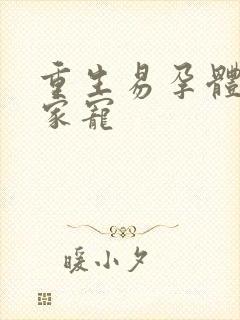 重生易孕體
家寵
暖小夕